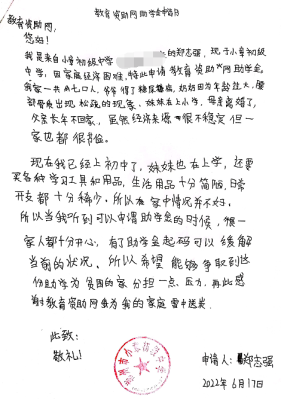 教育资助网助学金申请书
教育资助网
您好!
我是来自小曹初级中学 的郑志强,现于小曹初级
中学,因家庭经济困难,特此申请教育资助网助学金。
我家一共七口人,爷爷得了糖尿病,奶奶因为年龄过大,腰
部骨头出现松疏的现象,妹妹在上小学,母亲离婚了,
父亲长年不回家,虽然经济来源很不稳定但一
家也都很节俭。
现在我已经上初中了,妹妹也在上学,还要
买各种学习工具和用品,生活用品十分简陋,日常
开支都十分稀少,所以在家中情况并不好。
所以当我听到可以申请助学金的时候,很一
家人都十分开心,有了助学金起码可以缓解
当前的状况,所以希望能够争取到这
份助学为贫困的家分担一点压力,再此感
谢教育资助网来为我的家庭雪中送炭。
此致:
敬礼!
申请人:郑志强
2022年6月17日